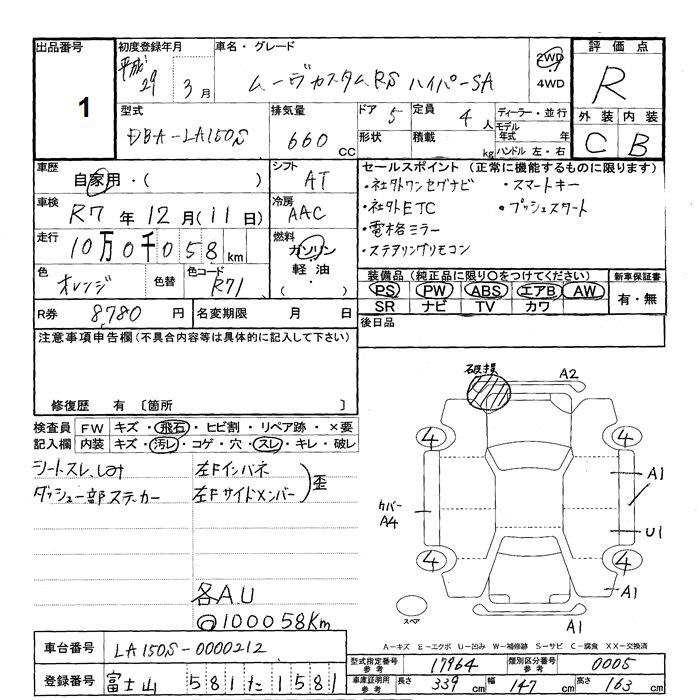 出品番号 初度登録年月 車名・グレード 評価点
1
平成29年 3月
ムーヴカスタムRS ハイパーSA
2WD
4WD
R
型式 排気量 ドア 定員 ディーラー・並行 外装 内装
DBA-LA150S 660 CC 5 4人
形状 積載 kg
モデル年式 年
ハンドル 左・右
C B
車歴 シフト セールスポイント (正常に機能するものに限ります)
自家用・( ) AT
・社外ワンセグナビ ・スマートキー
車検 冷房
R7年12月(11日) AAC
・社外ETC ・プッシュスタート
・電格ミラー
走行 燃料
10万0千058km ガソリン
・ステアリングリモコン
軽油
( ・ )
色 色替 色コード
オレンジ R71
装備品(純正品に限り○をつけてください) 新車保証書
PS PW ABS エアB AW 有・無
SR ナビ TV カワ
R券 8,780円 名変期限 月 日
後日品
注意事項申告欄(不具合内容等は具体的に記入して下さい)
修復歴 有 〔箇所 〕
検査員 FW キズ・飛石・ヒビ割・リペア跡・×要
記入欄 内装 キズ・汚レ・コゲ・穴・スレ・キレ・破レ
シートスレ、しみ
ダッシュ一部ステッカー
左Fインパネ
左Fサイドメンバー
歪
各A.U
@100058Km
破損 A2
4 4
A1
カバー
A4
U1
4 4
A1
スペア
A1
A-キズ E-エクボ U-凹み W-補修跡 S-サビ C-腐食 XX-交換済
車台番号 LA150S-0000212
型式指定番号 参考 17964 類別区分番号 参考 0005
登録番号 富士山 581 た 1581
車庫証明用 参考 長さ 339cm 幅 147cm 高さ 163cm